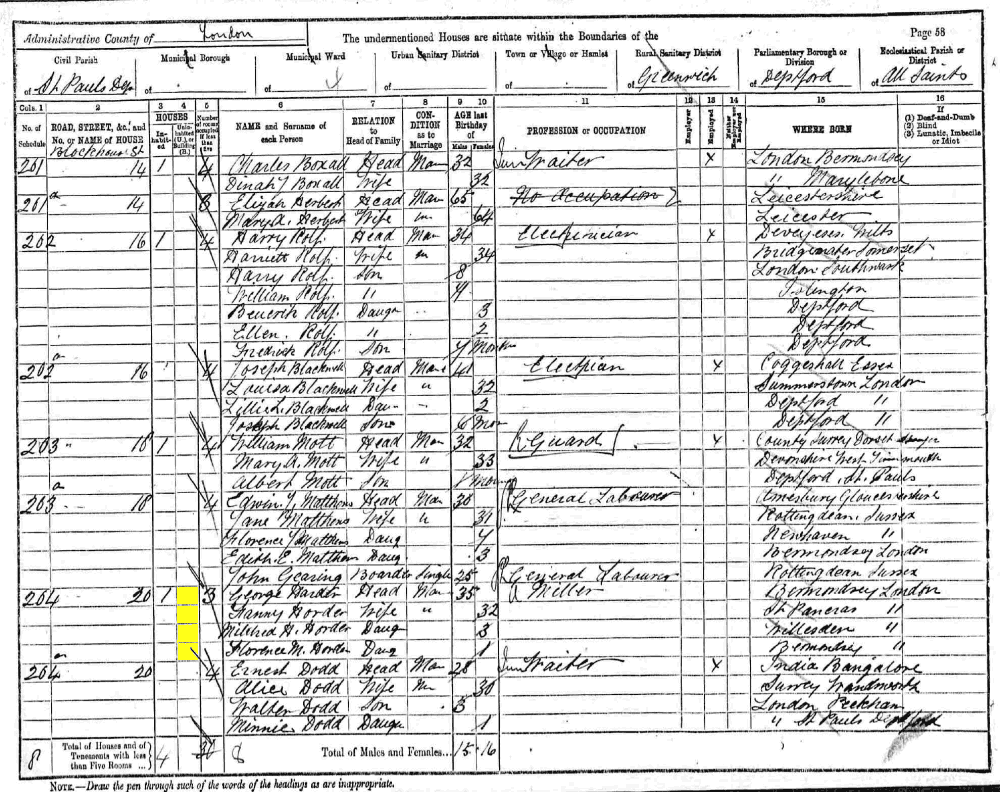 Administrative County of London The undermentioned Houses are situate within the Boundaries of the Page 58
Civil Parish Municipal Borough Municipal Ward Urban Sanitary District Town or Village or Hamlet Rural Sanitary District Parliamentary Borough or Division Ecclesiastical Parish or District
of St Pauls Dep of of of of of Greenwich of Deptford of All Saints
Cols. 1 2 3 4 5 6 7 8 9 10 11 12 13 14 15 16
No. of Schedule ROAD, STREET, &c., and No. or NAME of HOUSE HOUSES Inhabited Uninhabited (U.) or Building (B.) Number of rooms occupied if less than five NAME and Surname of each Person RELATION to Head of Family CONDITION as to Marriage AGE last Birthday of Males Females PROFESSION or OCCUPATION Employer Employed Neither Employer nor Employed WHERE BORN If (1) Deaf-and-Dumb (2) Blind (3) Lunatic, Imbecile or Idiot
Blackhorse St
201 14 1 4 Charles Boxall Head Mar 32 Inn Waiter x London Bermondsey
Dinah J Boxall Wife 32 " Marylebone
201 14 3 Elijah Herbert Head Mar 65 No Occupation Leicestershire
Mary A. Herbert Wife m 64 Leicester
202 16 1 4 Harry Rolf Head Mar 34 Electrician x Wilts
Harriett Rolf Wife m 34 Bridgewater Somerset
Harry Rolf Son 8 London Southwark
William Rolf " 4 Islington
Rolf Daugr 3 Deptford
Ellen Rolf " 2 Deptford
Fredrick Rolf Son 7 Months Deptford
202 16 4 Joseph Blackwell Head Mar 41 x Coggeshall Essex
Louisa Blackwell Wife " 32 Summerstown London
Lillie L. Blackwell Dau 2 Deptford "
Joseph Blackwell Son 6 Mon Deptford "
203 18 1 4 William Mott Head Mar 32 R Guard x County Surrey Dorset
Mary A. Mott Wife " 33 Devonshire West
Albert Mott Son mon Deptford St. Pauls
203 18 4 Edwin J. Matthews Head Mar 30 General Labourer Gloucestershire
Jane Matthews Wife " 31 Rottingdean, Sussex
Florence J Matthews Daug 4 Newhaven "
Edith E. Matthews Daug 3 Bermondsey London
John Gearing Boarder Single 25 General Labourer Rottingdean Sussex
204 20 1 3 George Harder Head Mar 35 A Miller Bermondsey London
Fanny Horder Wife " 32 St Pancras "
Mildred H. Horder Daug 3 Willesden "
Florence M. Horder Daug 1 Bermondsey "
204 20 4 Ernest Dodd Head Mar 28 Inn Waiter x India Bangalore
Alice Dodd Wife Mar 30 Surrey Wandsworth
Walter Dodd Son 3 London Peckham
Minnie Dodd Daugr 1 " St Pauls Deptford
8 Total of Houses and of Tenements with less than Five Rooms ... 4 8 Total of Males and Females... 15 16
NOTE.—Draw the pen through such of the words of the headings as are inappropriate.